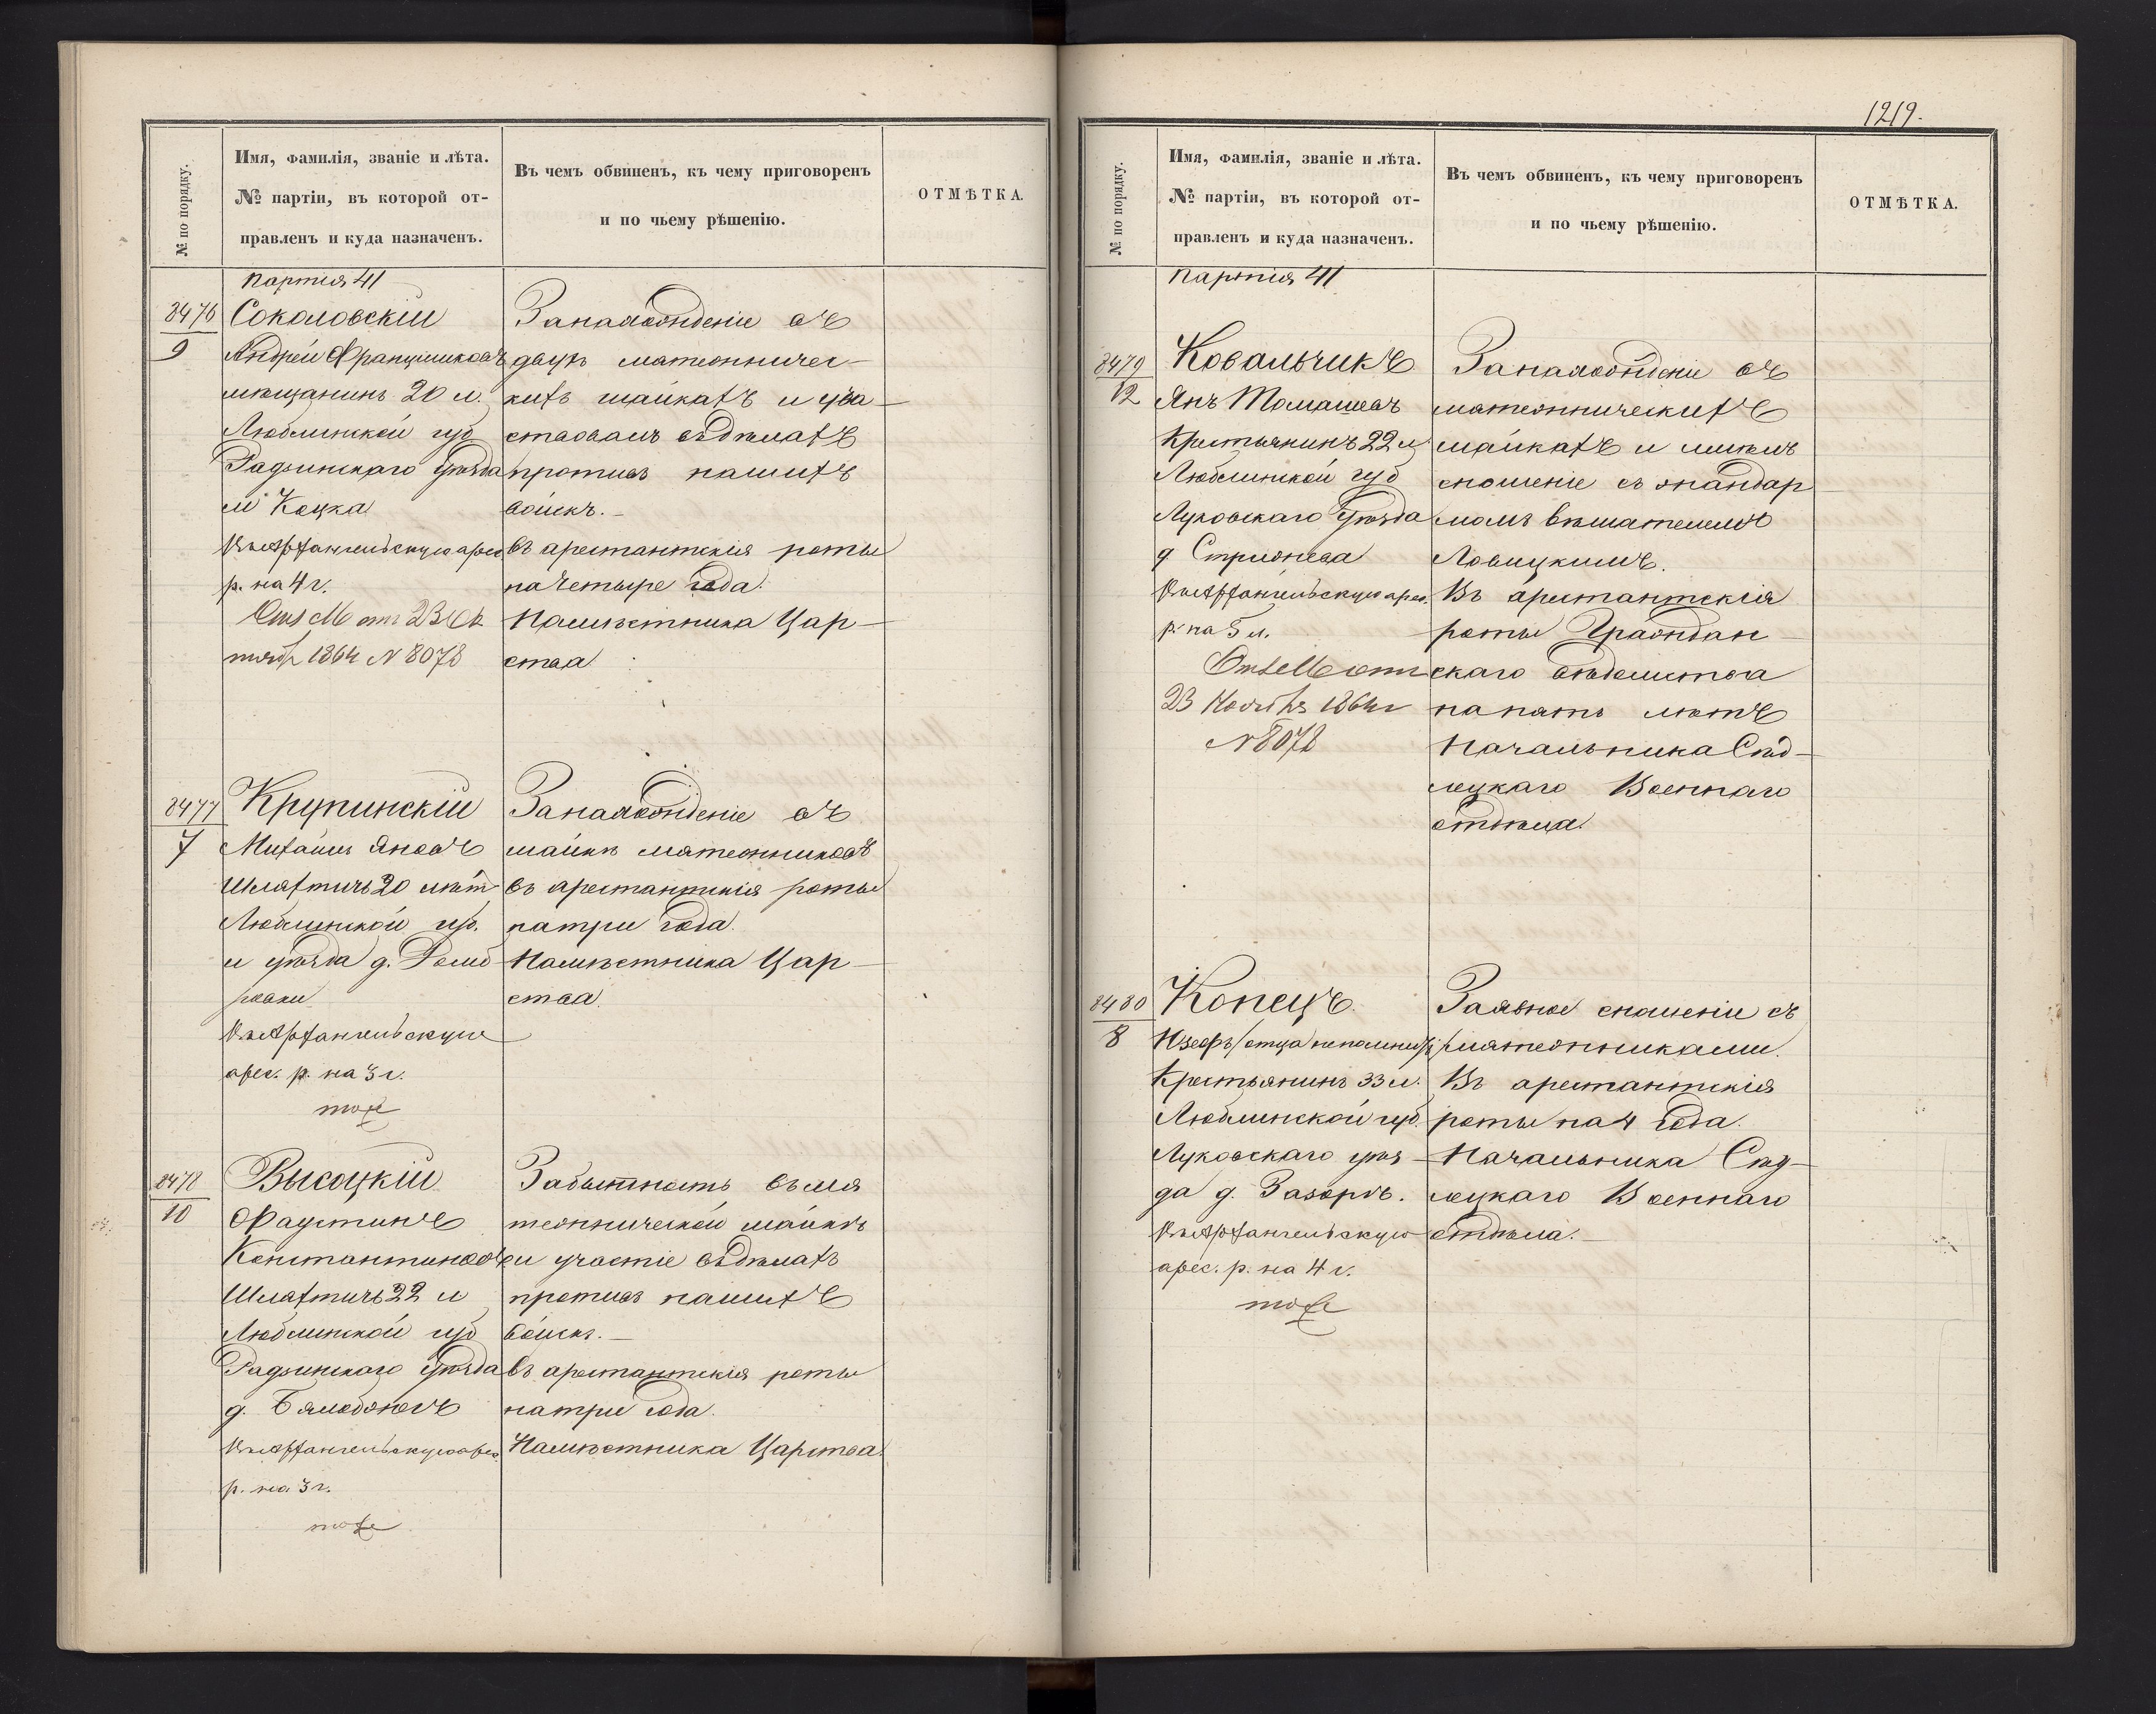 № по порядку.
Имя, фамилія, званіе и лѣта.
№ партіи, въ которой от-
правленъ и куда назначенъ.
Въ чемъ обвиненъ, къ чему приговоренъ
и по чьему рѣшенію.
ОТМѢТКА.
Партия 41
8476
9
Соколовскій
Андрей Францишковъ
мѣщанинъ 20 л.
Люблинской губ
Радзинскаго Уѣзда
м Коцка
Въ Архангельскую арес.
р. на 4 г.
1864 N 8078
За нахожденіе въ
двухъ мятежничес-
кихъ шайкахъ и уча-
ствовалъ въ дѣлахъ
противъ нашихъ
войскъ.-
въ арестантскія роты
на четыре года.
Намѣстника Цар-
ства
8477
7
Крупинскій
Михаилъ Яновъ
Шляхтичъ 20 лѣтъ
Люблинской губ.
и уѣзда д. Домб
ровки
Въ Архангельскую
арес. р. на 3 г.
тоже
За нахожденіе въ
шайкѣ мятежниковъ
въ арестантскія роты
на три года.
Намѣстника Цар-
ства.
8478
10
Высоцкій
Фаустинъ
Константиновъ
Шляхтичъ 22 л
Люблинской губ
Радзинскаго Уѣзда
д.
Въ Архангельскую арес.
р. на 3 г.
тоже
За бытность въ мя
тежнической шайкѣ
и участіе въ дѣлахъ
противъ нашихъ
войскъ.-
въ арестантскія роты
на три года.
Намѣстника Царства.
1219.
№ по порядку.
Имя, фамилія, званіе и лѣта.
№ партіи, въ которой от-
правленъ и куда назначенъ.
Въ чемъ обвиненъ, къ чему приговоренъ
и по чьему рѣшенію.
ОТМѢТКА.
Партія 41
8479
12
Ковальчикъ
Янъ Томашевъ
Крестьянинъ 22 л
Люблинской губ
Луковскаго Уѣзда
д
Въ Архангельскую арес.
р. на 5 л.
23 1864 г
N 8078
За нахожденіе въ
мятежническихъ
шайкахъ и имѣлъ
сношеніе съ жандар
момъ вѣшателемъ
Ловицкимъ.
Въ арестантскія
роты Граждан-
скаго вѣдомства
на пять лѣтъ
Начальника Сѣд-
лецкаго Военнаго
отдѣла.
8480
8
Конецъ.
Юзефъ /отца непомнитъ/
Крестьянинъ 33 л.
Люблинской губ.
Луковскаго уѣз-
да д. Зазоръ.
Въ Архангельскую
арес. р. на 4 г.
тоже
За явное сношеніе съ
мятежниками.
Въ арестантскія
роты на 4 года.
Начальника Сѣд-
лецкаго Военнаго
отдѣла.-